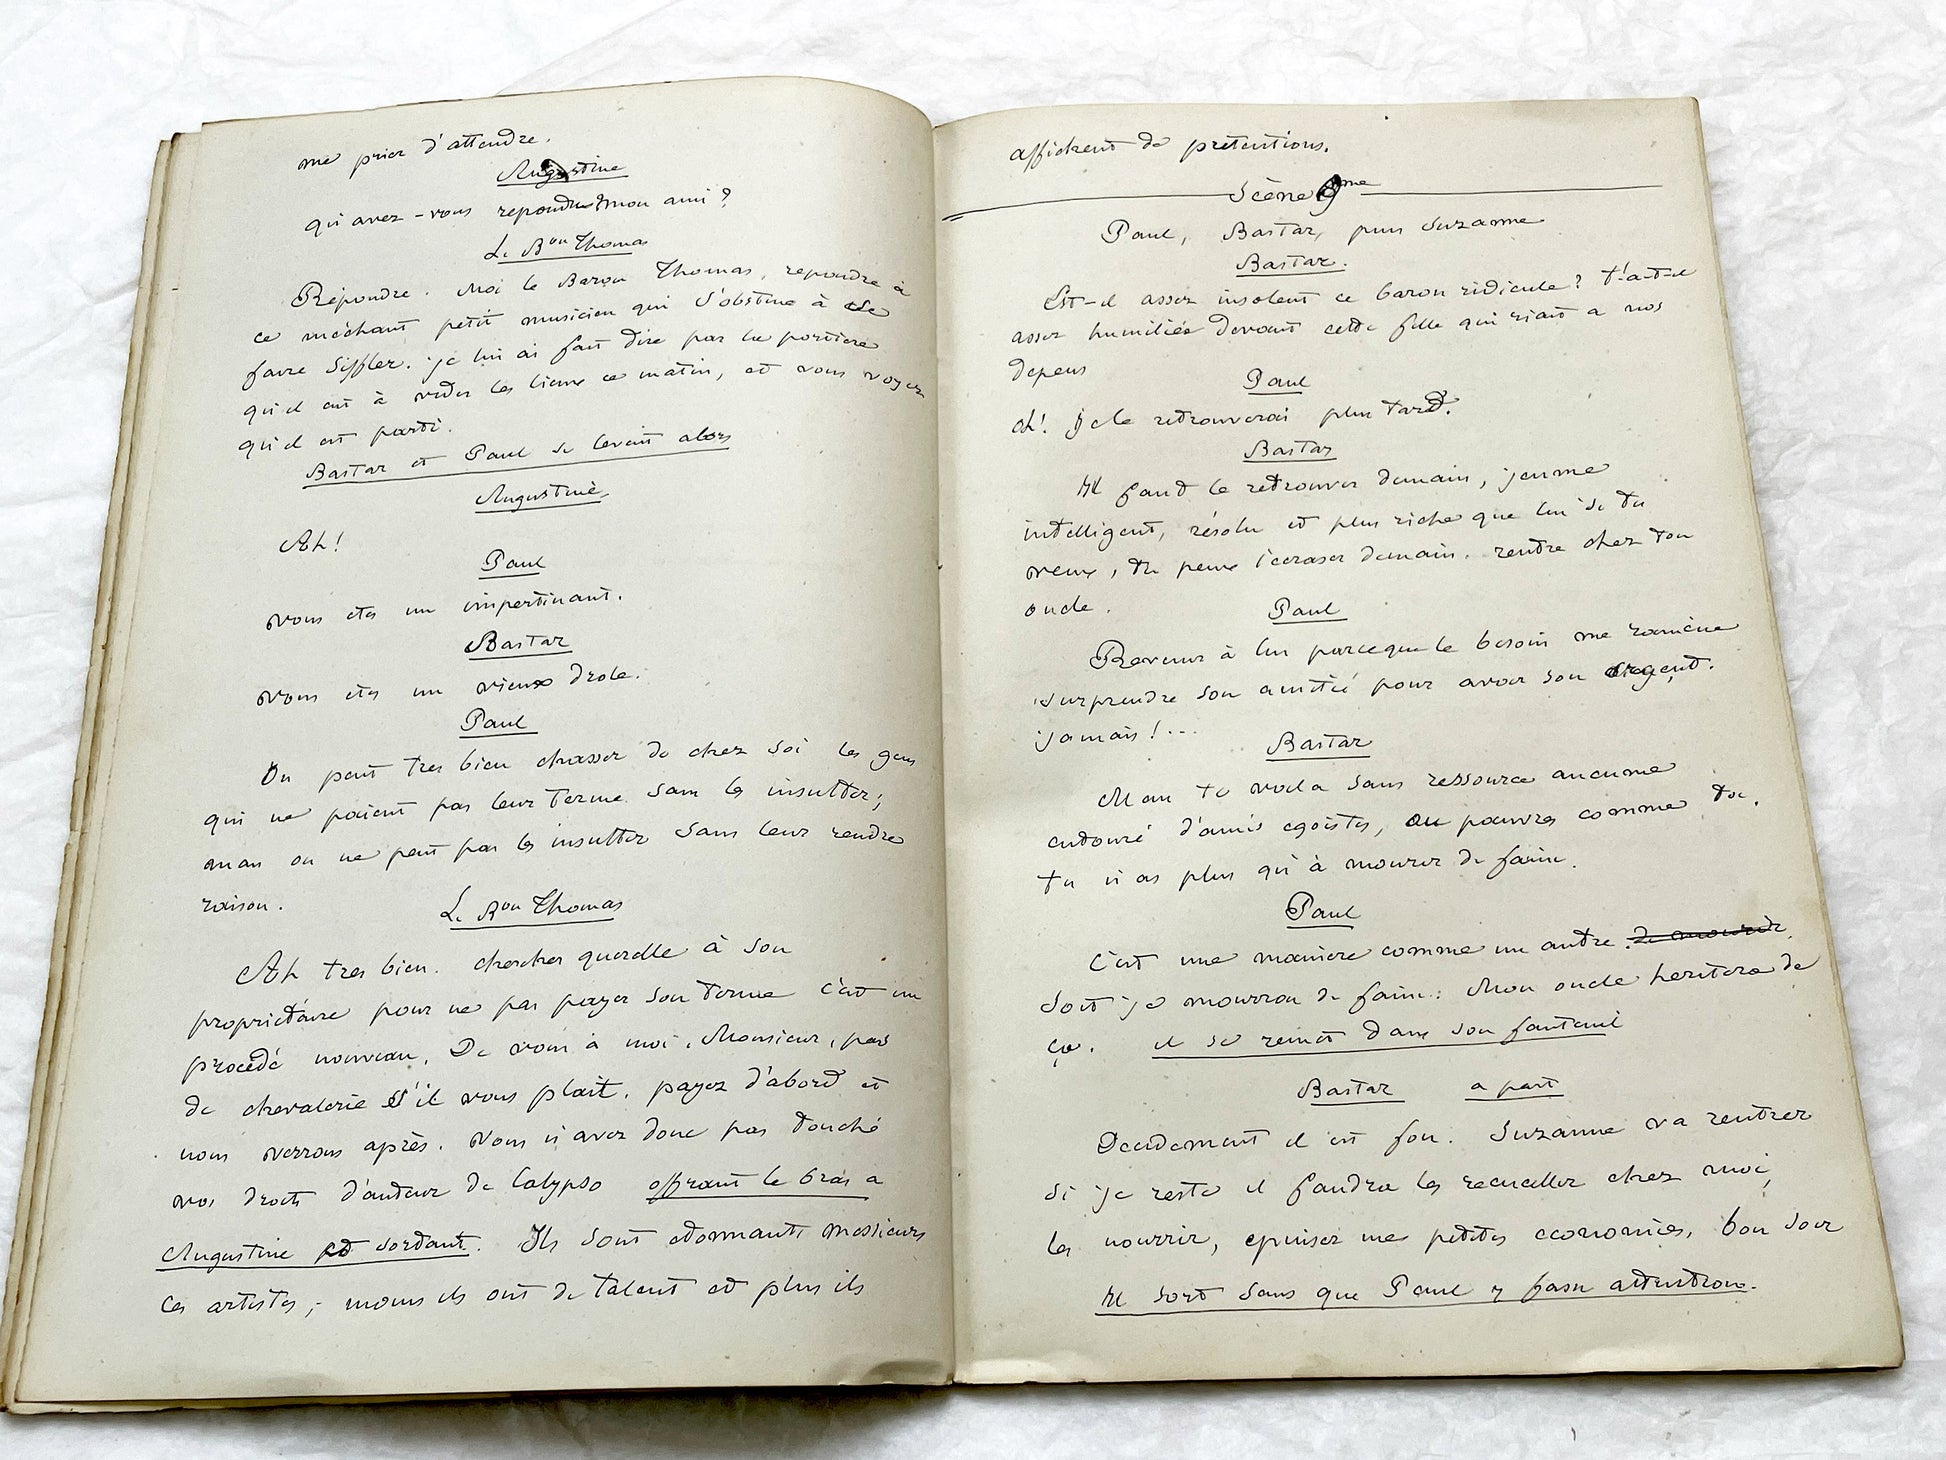 me prier d'attendre.
Augustine
qu'avez-vous repondu mon ami ?
Le Bon Thomas
Répondre. Moi le Baron Thomas, repondre à
ce méchant petit musicien qui s'obstine à se
faire siffler. je lui ai fait dire par la portiere
qu'il eut à vider les lieux ce matin, et vous voyez
qu'il est parti.
Bastar et Paul se levant alors
Augustine
Ah !
Paul
vous etes un impertinant.
Bastar
vous etes un vieux drole.
Paul
On peut tres bien chasser de chez soi les gens
qui ne paient pas leur terme sans les insulter ;
mais on ne peut pas les insulter sans leur rendre
raison.
Le Bon Thomas
Ah tres bien. chercher querelle à son
proprietaire pour ne pas payer son terme c'est un
procédé nouveau. De vous à moi, Monsieur, pas
de chevalerie s'il vous plait. payez d'abord et
nous verrons après. Vous n'avez donc pas touché
vos droits d'auteur de Calypso offrant le bras a
Augustine et sortant. Ils sont etonnants messieurs
les artistes, - moins ils ont de talent et plus ils
affichent de pretentions.
Scène 9me
Paul, Bastar, puis Suzanne
Bastar.
Est-il assez insolent ce baron ridicule ? t'a-t-il
assez humiliée devant cette fille qui riait a nos
depens
Paul
Oh ! je le retrouverai plus tard.
Bastar
Il faut le retrouver demain, jeune
intelligent, résolu et plus riche que lui si tu
veux, tu peux l'ecraser demain. rentre chez ton
oncle.
Paul
Revenir à lui parceque le besoin me ramène
surprendre son amitié pour avoir son argent.
jamais !...
Bastar
Mais te voila sans ressource aucune
entouré d'amis egoistes, ou pauvres comme toi.
tu n'as plus qu'à mourir de faim.
Paul
C'est une maniere comme un autre. de mourir.
Soit je mourrai de faim : Mon oncle heritera de
ça. il se remet dans son fauteuil
Bastar a part
Decidement il est fou. Suzanne va rentrer
si je reste il faudra les recueillir chez moi,
les nourrir, epuiser mes petites economies, bon soir
Il sort sans que Paul y fasse attention.